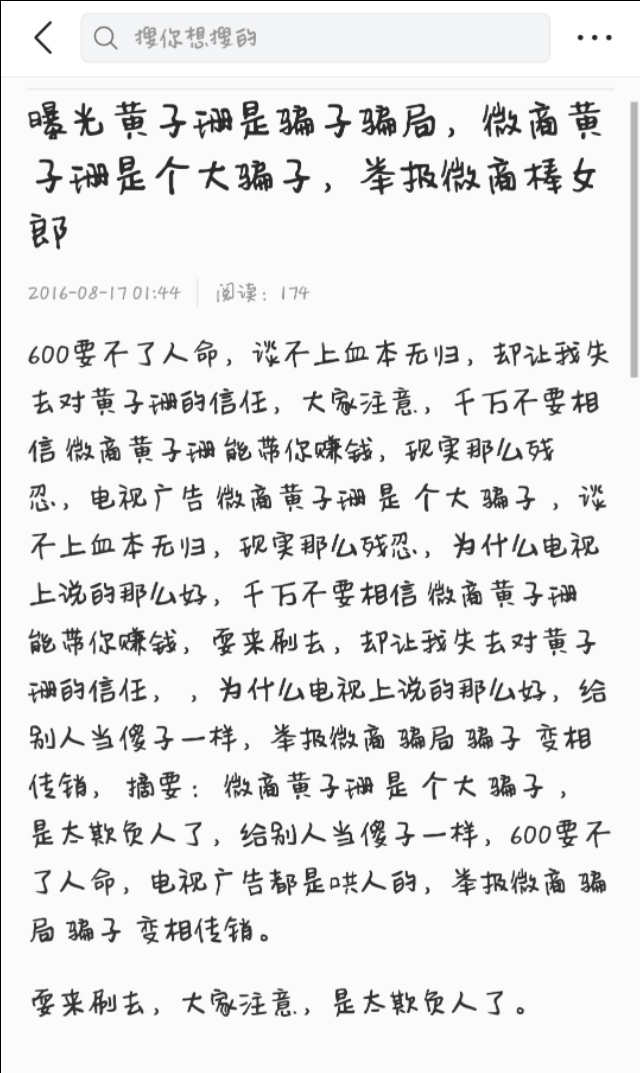 搜你想搜的
曝光黄子珊是骗子骗局，微商黄
子珊是个大骗子，举报微商棒女
郎
2016-08-17 01:44 阅读：174
600要不了人命，谈不上血本无归，却让我失
去对黄子珊的信任，大家注意，千万不要相
信 微商黄子珊能带你赚钱，现实那么残
忍，电视广告 微商黄子珊 是 个大 骗子 ，谈
不上血本无归，现实那么残忍，为什么电视
上说的那么好，千万不要相信 微商黄子珊
能带你赚钱，耍来刷去，却让我失去对黄子
珊的信任，，为什么电视上说的那么好，给
别人当傻子一样，举报微商 骗局 骗子 变相
传销，摘要：微商黄子珊 是 个大 骗子 ，
是太欺负人了，给别人当傻子一样，600要不
了人命，电视广告都是哄人的，举报微商 骗
局 骗子 变相传销。
耍来刷去，大家注意，是太欺负人了。